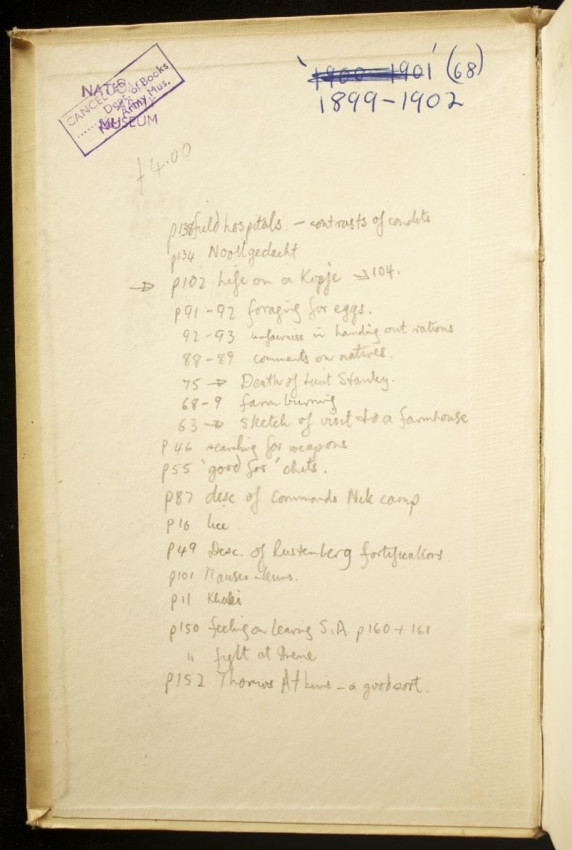 CANCELLED
Dept. of Books
Nat. Army Mus.
MUSEUM
'1900-1901' (68)
1899-1902
£4.00
p138 field hospitals - contrasts of conditn
p134 Nooitgedacht
→ p102 Life on a Kopje → 104.
p91-92 foraging for eggs.
92-93 unfairness in handing out rations
88-89 comments on natives.
75 → Death of Lieut Stanley.
68-9 farm burning
63 → Sketch of visit to a farmhouse
p46 searching for weapons
p55 'good for' chits.
p87 desc of Commando Nek camp
p16 lice
p49 Desc. of Rustenberg fortifications.
p101 Mauser
p11 Khaki
p150 feeling on leaving S.A. p160 + 161
" fight at Irene
p152 Thomas Atkins - a good sort.